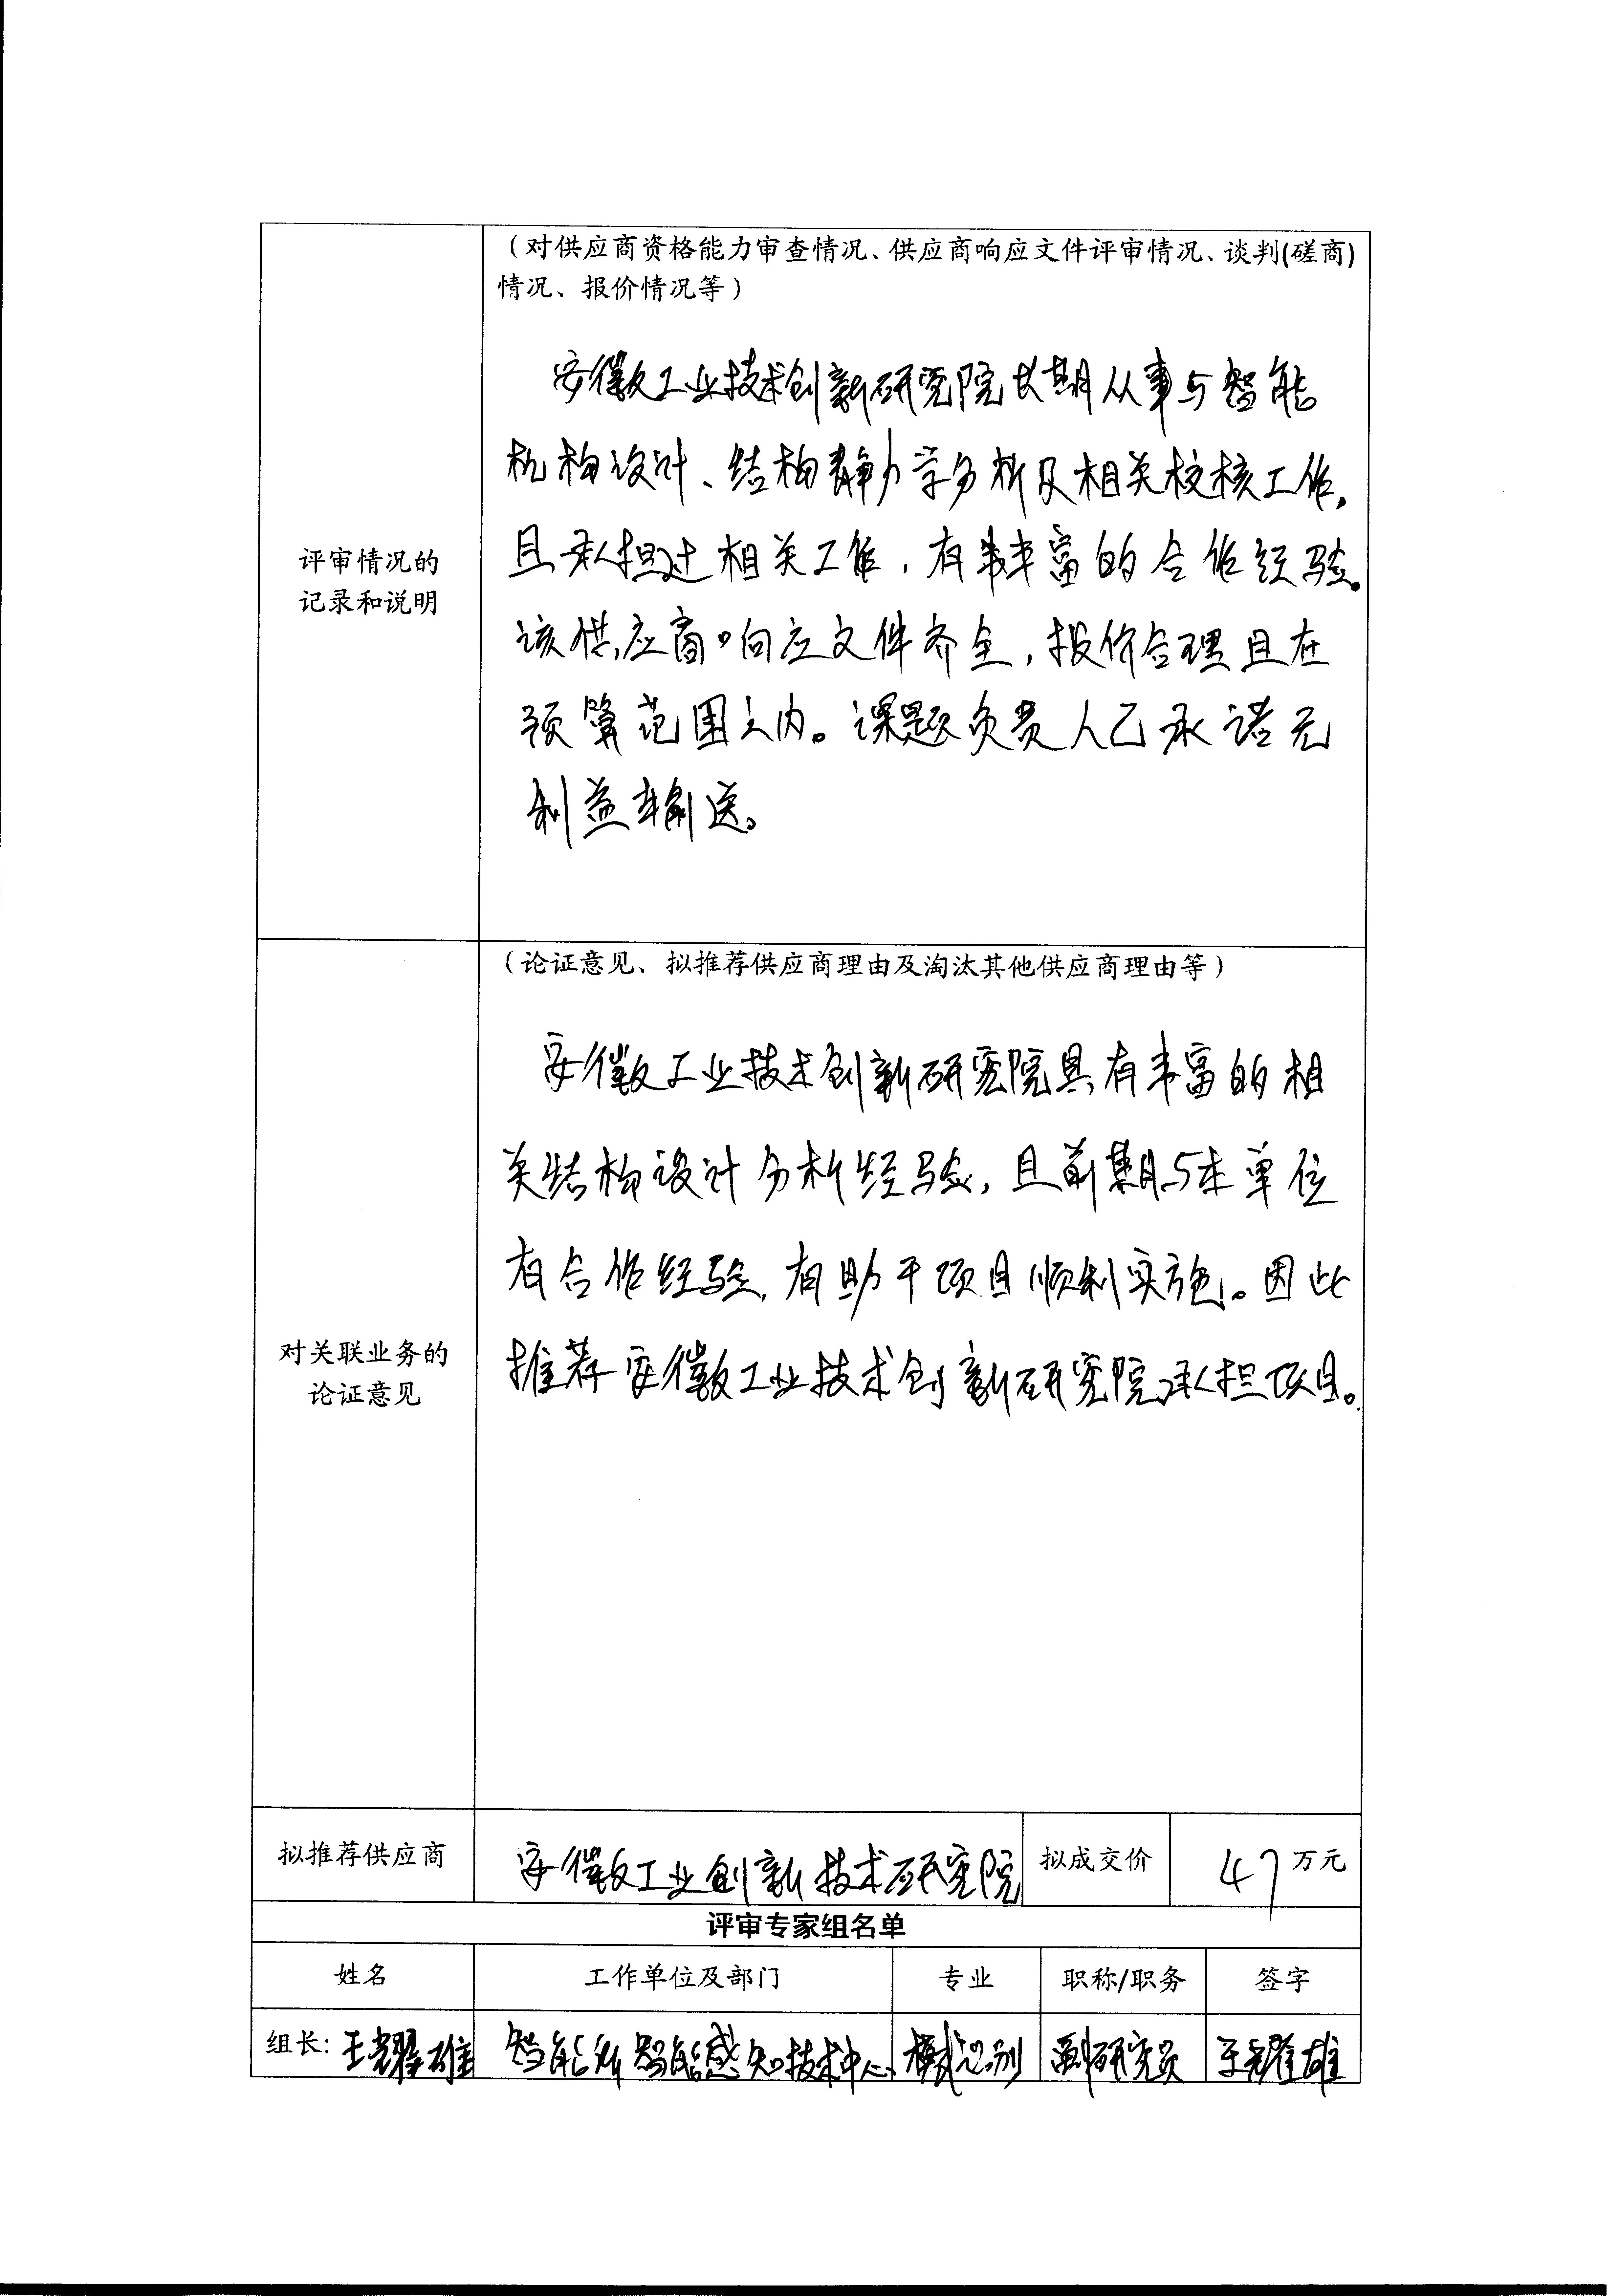 (对供应商资格能力审查情况、供应商响应文件评审情况、谈判(磋商)
情况、报价情况等)
安徽工业技术创新研究院长期从事与智能
机构设计、结构静力学分析及相关校核工作,
评审情况的
记录和说明
且承担过相关工作,有丰富的合作经验。
该供应商响应文件齐全,报价合理且在
预算范围之内。课题负责人已承诺无
利益输送。
(论证意见、拟推荐供应商理由及淘汰其他供应商理由等)
安徽工业技术创新研究院具有丰富的相
关结构设计分析经验,且前期与本单位
有合作经验,有助于项目顺利实施。因此
对关联业务的
论证意见
推荐安徽工业技术创新研究院承担项目。
拟推荐供应商 安徽工业创新技术研究院 拟成交价 47 万元
评审专家组名单
姓名 工作单位及部门 专业 职称/职务 签字
组长:王耀雄 智能所智能感知技术中心 模式识别 副研究员 王耀雄